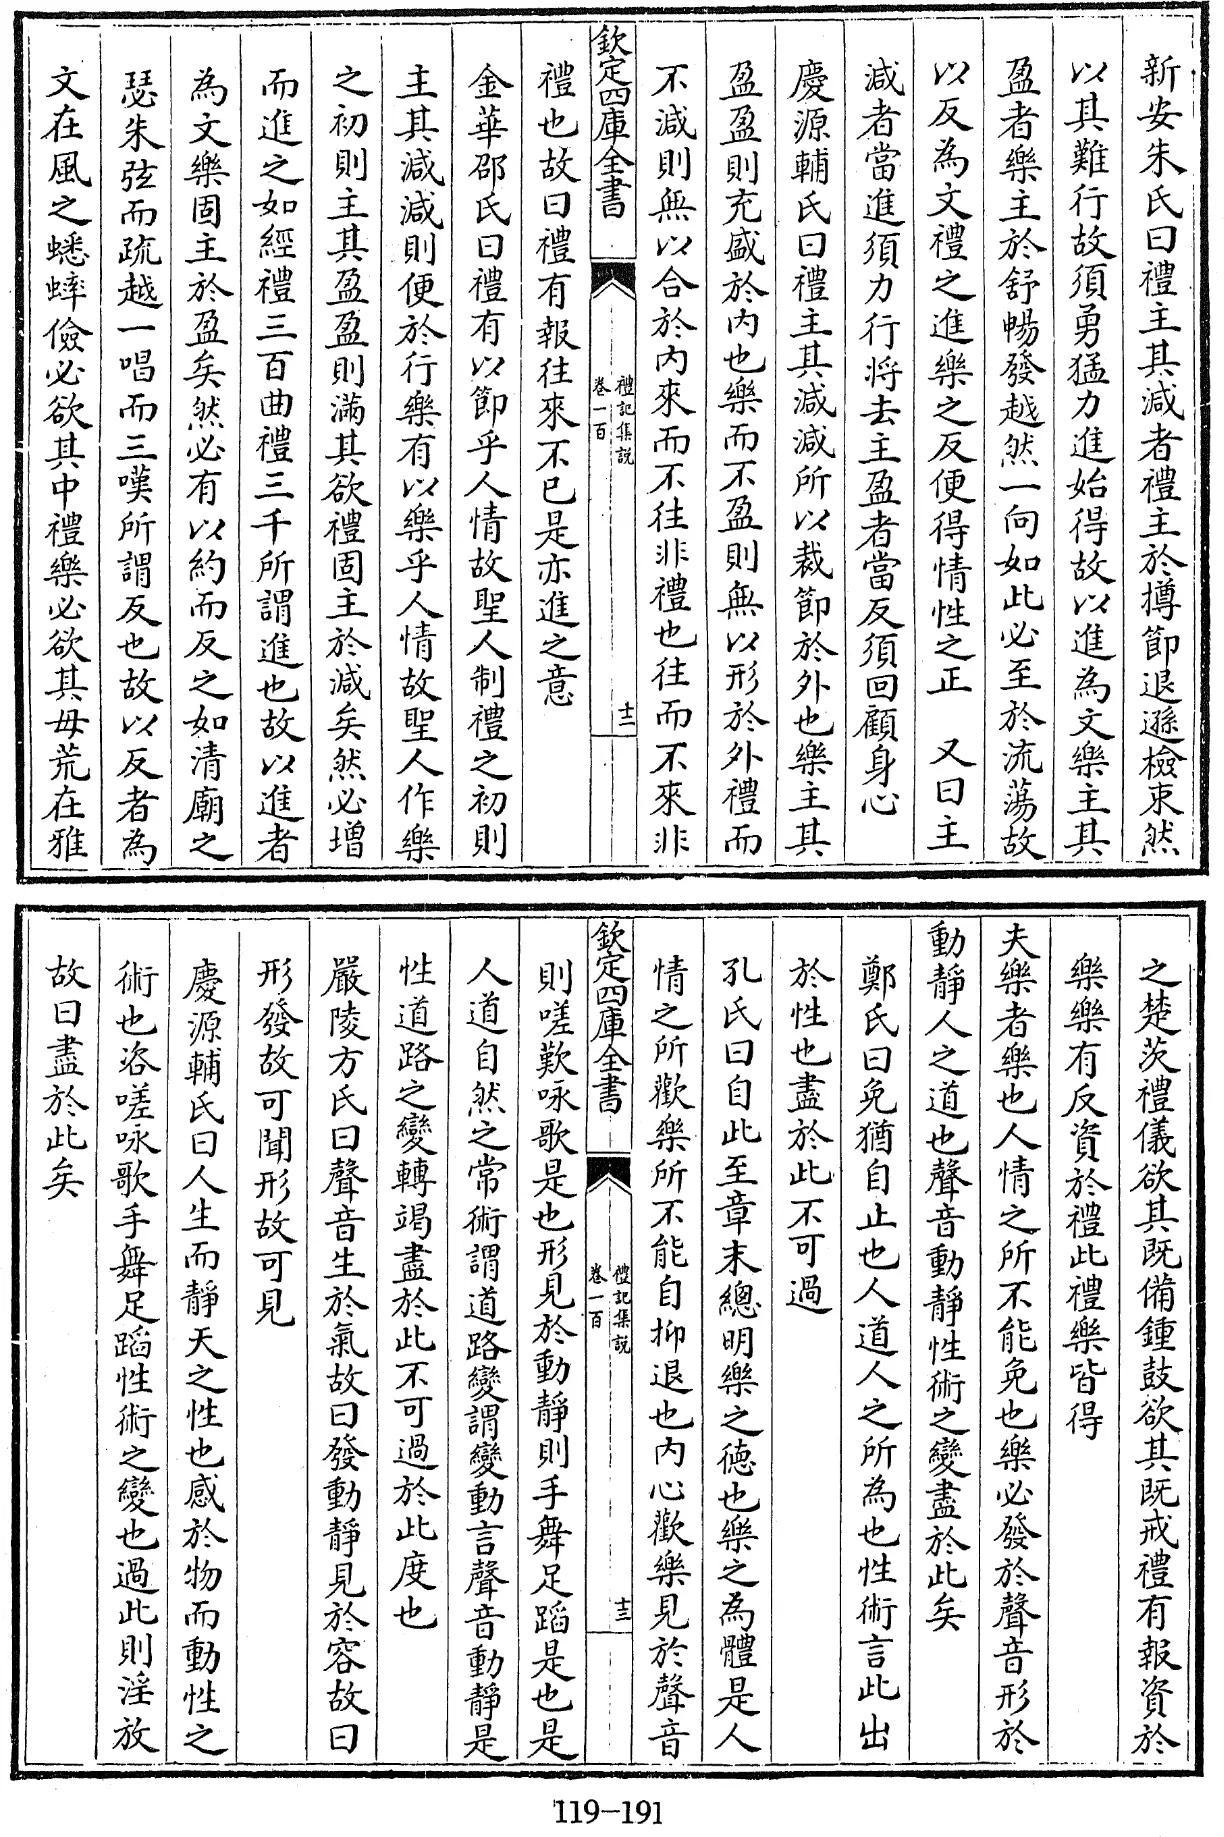 新安朱氏曰禮主其減者禮主於撙節退遜檢束然
以其難行故須勇猛力進始得故以進為文樂主其
盈者樂主於舒暢發越然一向如此必至於流蕩故
以反為文禮之進樂之反便得情性之正　又曰主
減者當進須力行將去主盈者當反須回顧身心
慶源輔氏曰禮主其減減所以裁節於外也樂主其
盈盈則充盛於內也樂而不盈則無以形於外禮而
不減則無以合於內來而不往非禮也往而不來非
欽定四庫全書
禮記集說
卷一百
十二
禮也故曰禮有報往來不已是亦進之意
金華邵氏曰禮有以節乎人情故聖人制禮之初則
主其減減則便於行樂有以樂乎人情故聖人作樂
之初則主其盈盈則滿其欲禮固主於減矣然必增
而進之如經禮三百曲禮三千所謂進也故以進者
為文樂固主於盈矣然必有以約而反之如清廟之
瑟朱弦而疏越一唱而三嘆所謂反也故以反者為
文在風之蟋蟀儉必欲其中禮樂必欲其毋荒在雅
之楚茨禮儀欲其既備鍾鼓欲其既戒禮有報資於
樂樂有反資於禮此禮樂皆得
夫樂者樂也人情之所不能免也樂必發於聲音形於
動靜人之道也聲音動靜性術之變盡於此矣
鄭氏曰免猶自止也人道人之所為也性術言此出
於性也盡於此不可過
孔氏曰自此至章末總明樂之德也樂之為體是人
情之所歡樂所不能自抑退也內心歡樂見於聲音
欽定四庫全書
禮記集說
卷一百
十三
則嗟歎咏歌是也形見於動靜則手舞足蹈是也是
人道自然之常術謂道路變謂變動言聲音動靜是
性道路之變轉竭盡於此不可過於此度也
嚴陵方氏曰聲音生於氣故曰發動靜見於容故曰
形發故可聞形故可見
慶源輔氏曰人生而靜天之性也感於物而動性之
術也咨嗟咏歌手舞足蹈性術之變也過此則淫放
故曰盡於此矣
119-191